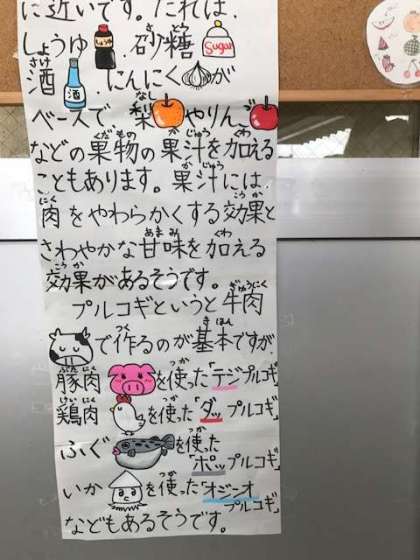 に近いです。たれは、
しょうゆ、砂糖、Sugar
酒 酒、にんにくが
ベースで、梨やりんご
などの果物の果汁を加える
こともあります。果汁には、
肉をやわらかくする効果と
さわやかな甘味を加える
効果があるそうです。
プルコギというと牛肉
で作るのが基本ですが、
豚肉を使った「テジプルコギ」
鶏肉を使った「ダップルコギ」
ふぐを使った
「ポップルコギ」
いかを使った「オジンオ
プルコギ」
などもあるそうです。